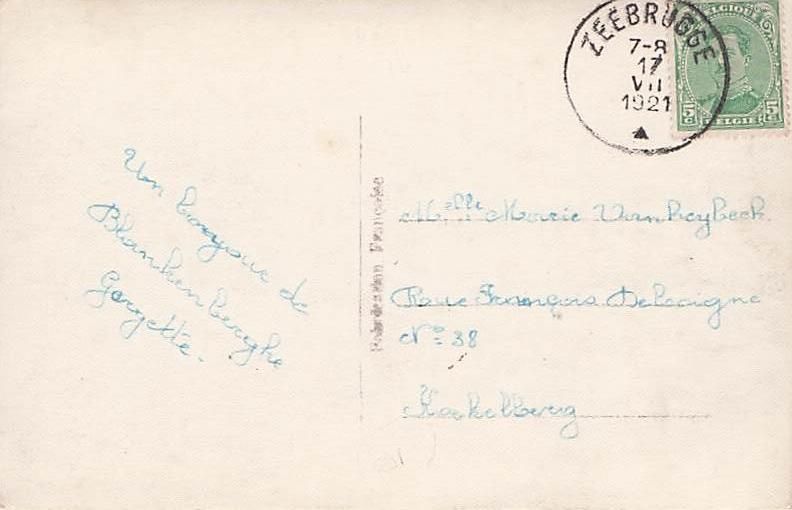 ZEEBRUGGE
7-8
17
VII
1921
BELGIQUE
5c 5c
BELGIË
Un bonjour de
Blankenberghe
Georgette.
Fabrication Française
Melle Marie Vanheybeek.
Rue François Delcoigne
No= 38
Koekelberg